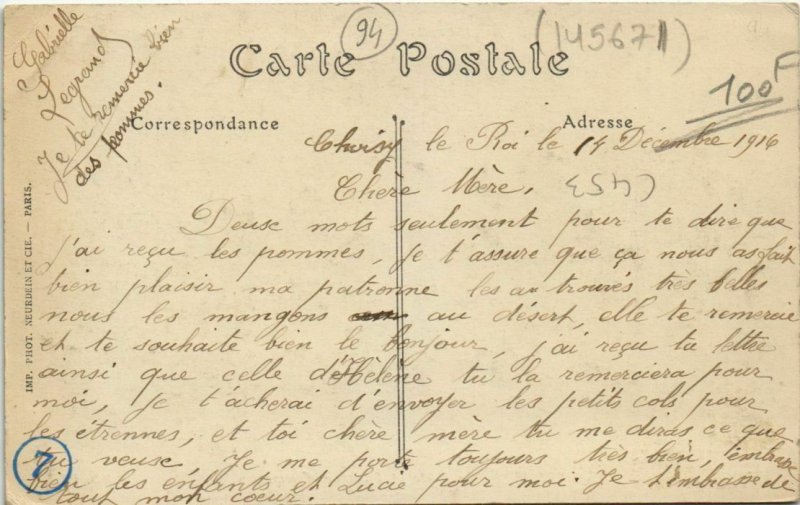 Gabrielle
Legrand
Je te remercie bien
des pommes.
94
(145671)
100F
Carte Postale
Correspondance
Adresse
Choisy le Roi le 14 Décembre 1916
Chère Mère,
Deusc mots seulement pour te dire que
j'ai reçu les pommes, je t'assure que ça nous as fait
bien plaisir ma patronne les au trouvés très belles
nous les mangons au désert, elle te remercie
et te souhaite bien le bonjour, j'ai reçu ta lettre
ainsi que celle d'Hélène tu la remerciera pour
moi, je t'acherai d'envoyer les petits cols pour
les étrennes, et toi chère mère tu me diras ce que
tu veusc. Je me porte toujours très bien, embrasse
bien les enfants et Lucie pour moi. Je t'embrasse de
tout mon coeur.
IMP. PHOT. NEURDEIN ET CIE. — PARIS.
7